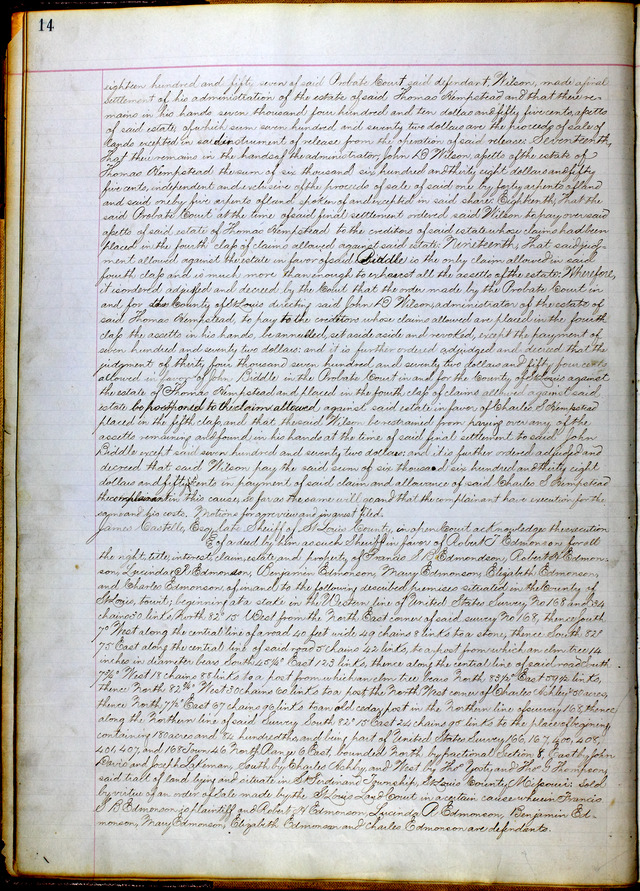 14
eighteen hundred and fifty seven of said Probate Court said defendant, Wilson, made a final
settlement of his administration of the estate of said Thomas Hempstead and that there re-
mains in his hands seven thousand four hundred and ten dollars and fifty five cents, assetts
of said estate of which sum seven hundred and seventy two dollars are the proceeds of sale of
lands excepted in said instrument of release from the operation of said release: Seventeenth,
that there remains in the hands of the administrator, John D Wilson, assetts of the estate of
Thomas Hempstead the sum of six thousand six hundred and thirty eight dollars and fifty
five cents, independent and exclusive of the proceeds of sale of said one by forty arpents of land
and said one by five arpents of land spoken of and excepted in said share: Eighteenth, that the
said Probate Court at the time of said final settlement ordered said Wilson to pay over said
assetts of said estate of Thomas Hempstead to the creditors of said estate whose claims had been
placed in the fourth class of claims allowed against said estate: Nineteenth, That said judg-
ment allowed against the estate in favor of said Biddle is the only claim allowed in said
fourth class and is much more than enough to exhaust all the assetts of the estate: Wherefore,
it is ordered adjudged and decreed by the Court that the order made by the Probate Court in
and for the County of St Louis directing said John D Wilson, administrator of the estate of
said Thomas Hempstead, to pay to the creditors whose claims allowed are placed in the fourth
class the assetts in his hands, be annulled, set aside aside and revoked, except the payment of
seven hundred and seventy two dollars: and it is further ordered adjudged and decreed that the
judgment of thirty four thousand seven hundred and seventy two dollars and fifty four cents
allowed in favor of John Biddle in the Probate Court in and for the County of St Louis against
the estate of Thomas Hempstead and placed in the fourth class of claims allowed against said
estate be postponed to the claim allowed against said estate in favor of Charles S Hempstead
placed in the fifth class, and that the said Wilson be restrained from paying over any of the
assetts remaining and found in his hands at the time of said final settlement to said John
Biddle except said seven hundred and seventy two dollars: and it is further ordered adjudged and
decreed that said Wilson pay the said sum of six thousand six hundred and thirty eight
dollars and fifty cents in payment of said claim and allowance of said Charles S Hempstead
the complainant in this cause, so far as the same will go and that the complainant have execution for the
same and his costs. Motions for a review and in arrest filed.
James Castello, Esq, late Sheriff of St Louis County, in open Court acknowledges the execution
of a deed by him as such Sheriff in favor of Robert T Edmonson for all
the right, title, interest, claim, estate, and property of Francis S B Edmondson, Robert H Edmon-
son, Lucinda P Edmonson, Benjamin Edmonson, Mary Edmonson, Elizabeth Edmonson,
and Charles Edmonson, of in and to the following described premises situated in the County of
St Louis, to wit; beginning at a stake in the Western line of United States Survey No 168 and 34
chains 30 links North 82° 15' West from the North East corner of said survey No 168, thence South
7° West along the central line of a road 40 feet wide 49 chains 8 links to a stone, thence South 82°
75 East along the central line of said road 5 chains 42 links, to a post from which an elm tree 14
inches in diameter bears South 45½° East 123 links, thence along the central line of said road South
7½° West 18 chains 88 links to a post from which an elm tree bears North 83½° East 59½ links,
thence North 82¾° West 30 chains 60 links to a post the North West corner of Charles Ashby's 50 acres,
thence North 7½° East 67 chains 96 links to an old cedar post in the Northern line of survey 168, thence
along the Northern line of said Survey South 82° 15' East 24 chains 95 links to the place of beginning
containing 180 acres and 84 hundredths, and being part of United States Survey 166, 167, 400, 405,
406, 407, and 168 Town 46 North Range 6 East, bounded North by factional Section 8, East by John
Davis and Joseph Lakeman, South by Charles Ashby, and West by Thos Yosti, and Thos J Thompson,
said tract of land lying and situate in St Ferdinand Township, St Louis County, Missouri: sold
by virtue of an order of sale made by the St Louis Land Court in a certain cause wherein Francis
S B Edmonson is plaintiff and Robert H Edmonson, Lucinda P Edmonson, Benjamin Ed-
monson, Mary Edmonson, Elizabeth Edmonson and Charles Edmonson are defendants.